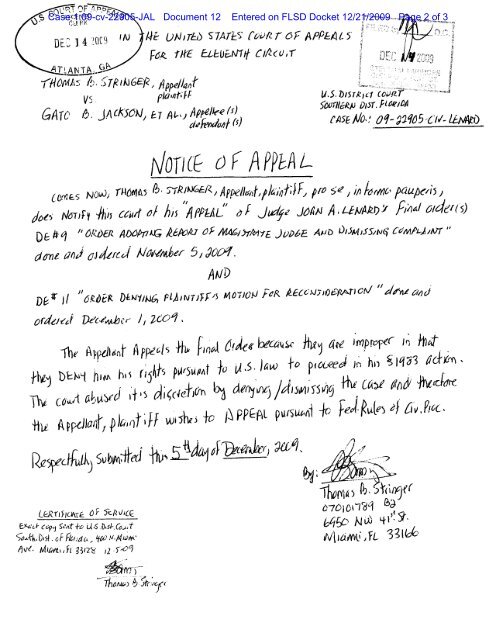 Case 1:09-cv-22905-JAL Document 12 Entered on FLSD Docket 12/21/2009 Page 2 of 3
U.S. COURT OF APPEALS
DEC 14 2009
ATLANTA, GA
DEC 14 2009
IN THE UNITED STATES COURT OF APPEALS
FOR THE ELEVENTH CIRCUIT
THOMAS B. STRINGER, Appellant
plaintiff
VS
GATO B. JACKSON, ET AL., Appellee(s)
defendant(s)
U.S. DISTRICT COURT
SOUTHERN DIST. FLORIDA
CASE NO.: 09-22905-CIV-LENARD
NOTICE OF APPEAL
COMES NOW, THOMAS B. STRINGER, Appellant, plaintiff, pro se, in forma pauperis,
does NOTIFY this court of his "APPEAL" of Judge JOAN A. LENARD'S final order(s)
DE#9 "ORDER ADOPTING REPORT OF MAGISTRATE JUDGE AND DISMISSING COMPLAINT"
done and ordered November 5, 2009.
AND
DE# 11 "ORDER DENYING PLAINTIFF'S MOTION FOR RECONSIDERATION" done and
ordered December 1, 2009.
The Appellant Appeals the final Order because they are improper in that
they DENY him his rights pursuant to U.S. law to proceed in his §1983 action.
The court abused it's discretion by denying/dismissing the case and therefore
the Appellant, plaintiff wishes to APPEAL pursuant to Fed. Rules of Civ. Proc.
Respectfully Submitted this 5th day of December, 2009.
By:
Thomas B. Stringer
070101789 B2
6950 NW 41st St.
Miami, FL 33166
CERTIFICATE OF SERVICE
Exact copy sent to U.S Dist. Court
South. Dist. of Florida, 400 N. Miami
Ave. Miami, Fl 33128 12-5-09
Thomas B Stringer